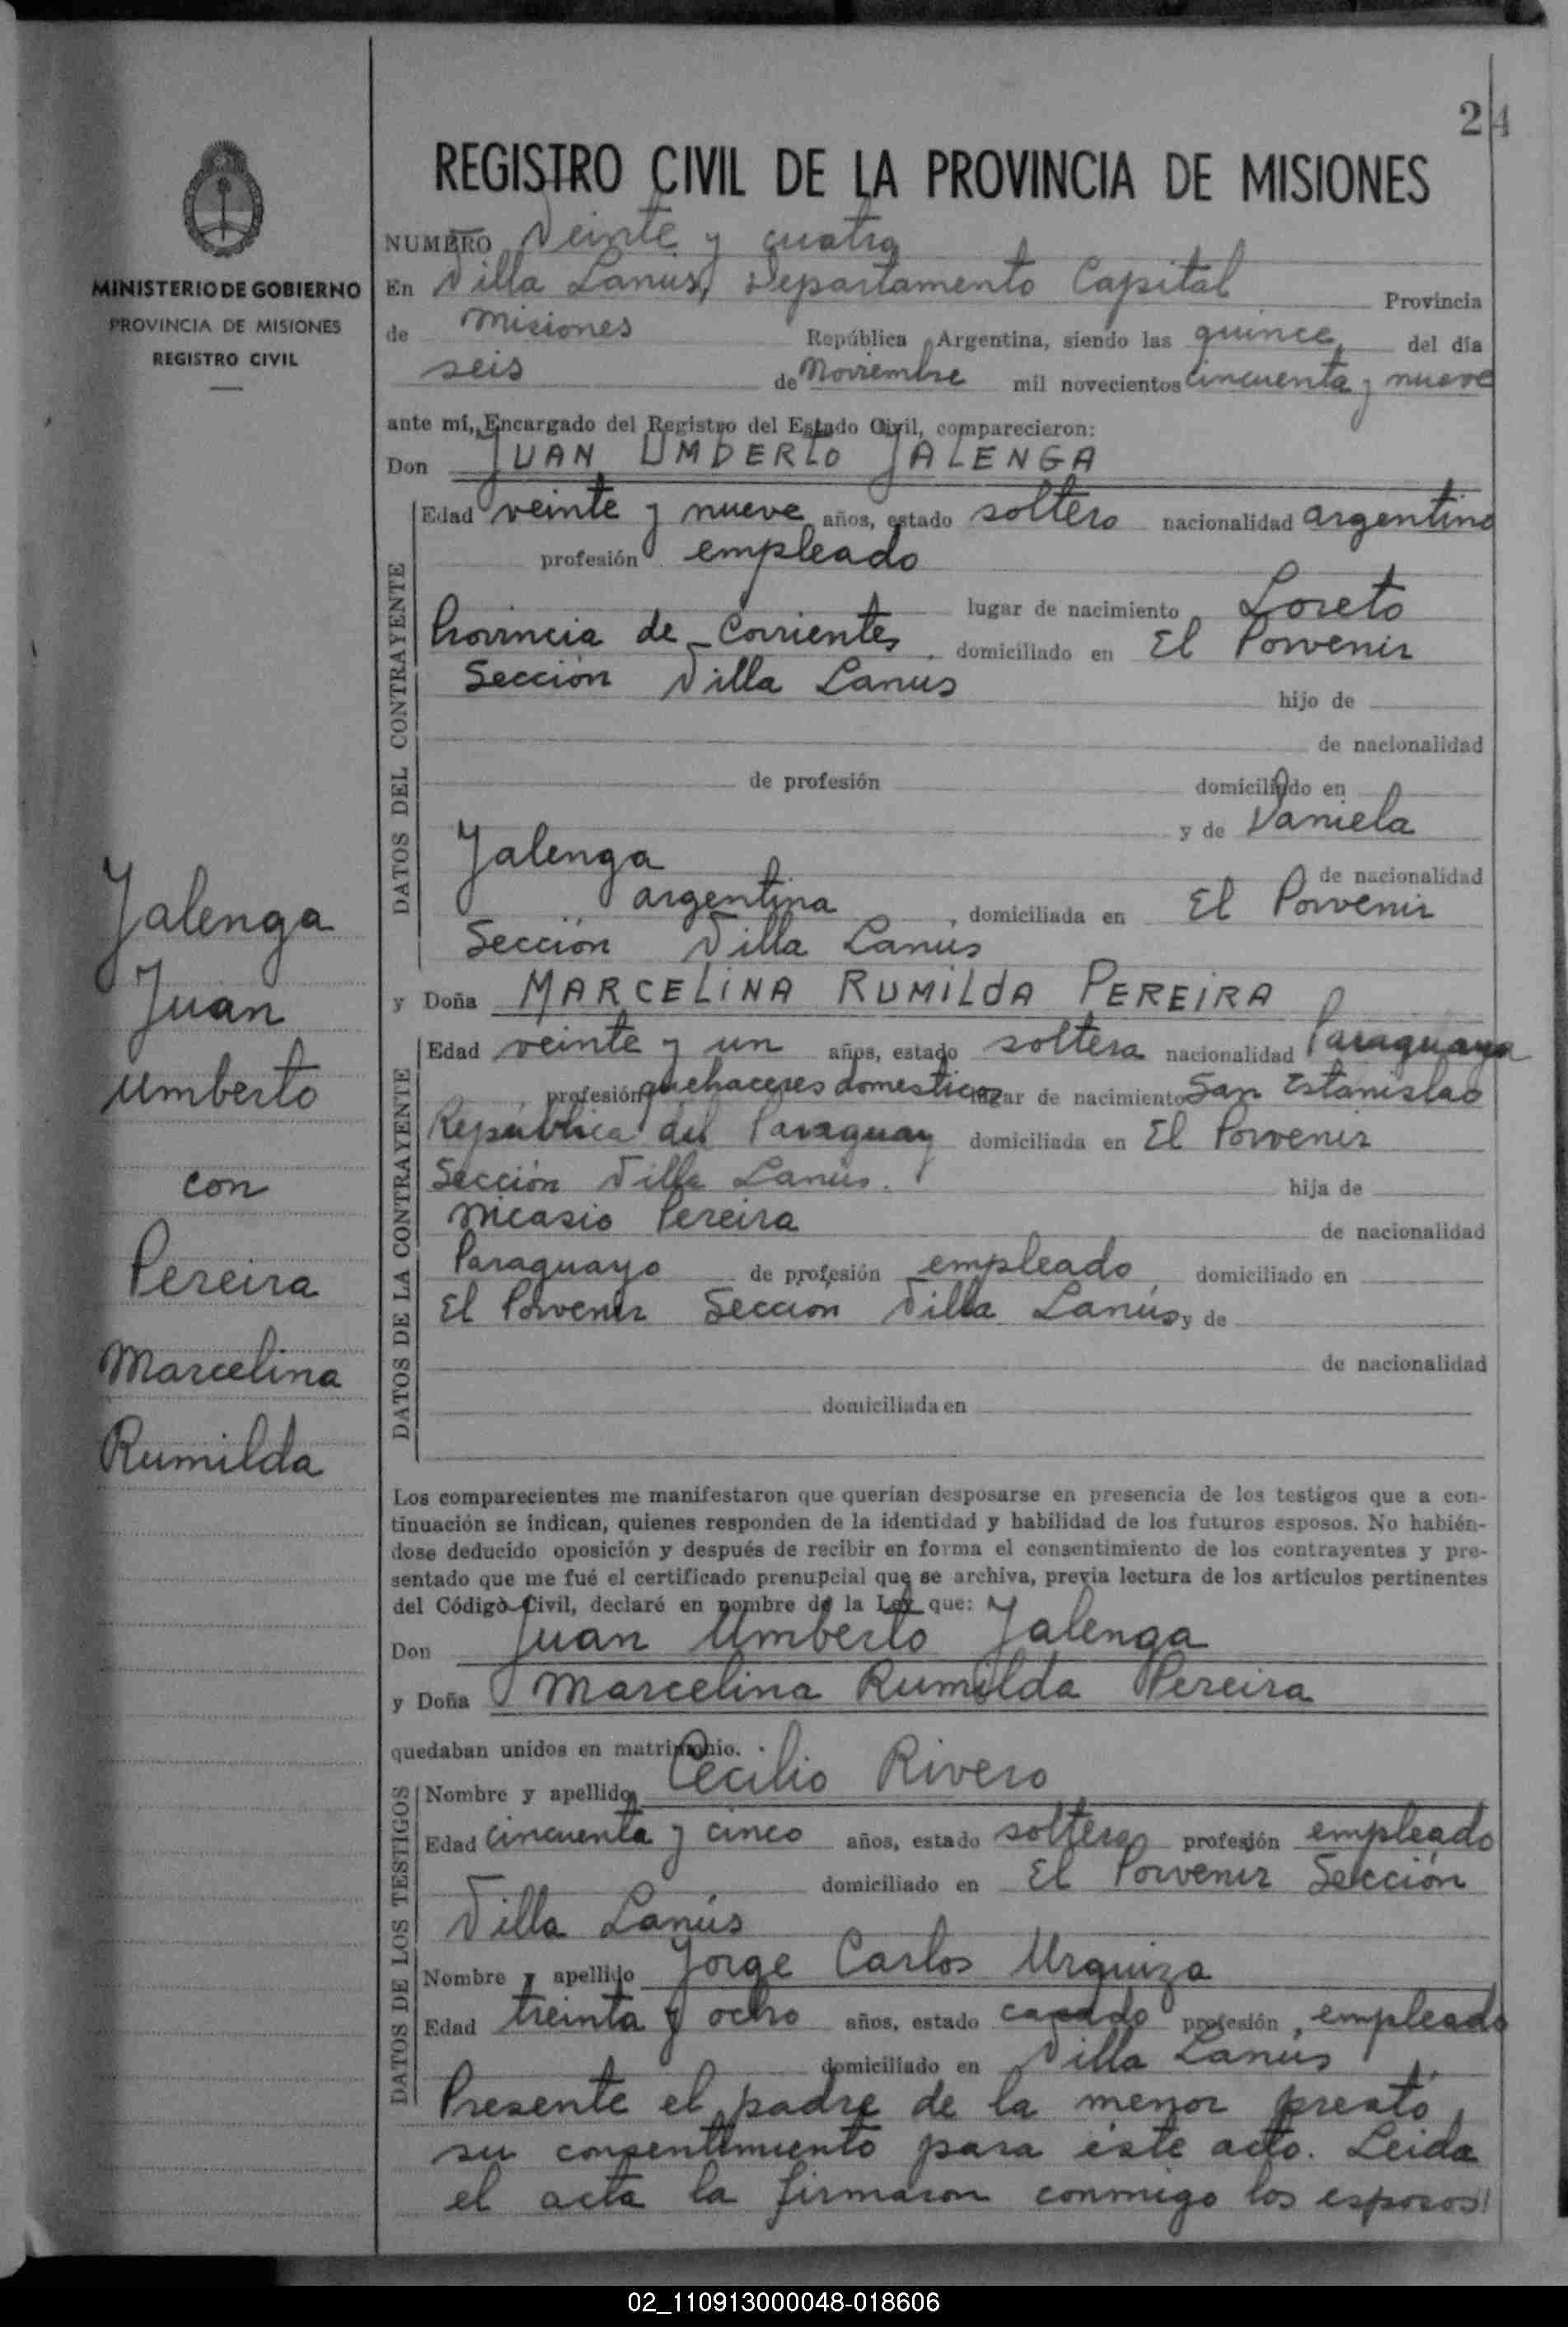 24
REGISTRO CIVIL DE LA PROVINCIA DE MISIONES
MINISTERIO DE GOBIERNO
PROVINCIA DE MISIONES
REGISTRO CIVIL
NUMERO Veinte y cuatro
En Villa Lanús, Departamento Capital Provincia
de Misiones República Argentina, siendo las quince, del día
seis de Noviembre mil novecientos cincuenta y nueve
ante mí, Encargado del Registro del Estado Civil, comparecieron:
Don JUAN UMBERTO YALENGA
DATOS DEL CONTRAYENTE
Edad veinte y nueve años, estado soltero nacionalidad argentino
profesión empleado
lugar de nacimiento Loreto
Provincia de Corrientes, domiciliado en El Porvenir
Sección Villa Lanus hijo de
de nacionalidad
de profesión domiciliado en
y de Daniela
Yalenga de nacionalidad
argentina, domiciliada en El Porvenir
Sección Villa Lanús
y Doña MARCELINA RUMILDA PEREIRA
DATOS DE LA CONTRAYENTE
Edad veinte y un años, estado soltera nacionalidad Paraguaya
profesión quehaceres domesticos lugar de nacimiento San Estanislao
República del Paraguay domiciliada en El Porvenir
Sección Villa Lanús. hija de
Nicasio Pereira de nacionalidad
Paraguayo de profesión empleado, domiciliado en
El Porvenir Sección Villa Lanús, y de
de nacionalidad
domiciliada en
Yalenga
Juan
Umberto
con
Pereira
Marcelina
Rumilda
Los comparecientes me manifestaron que querían desposarse en presencia de los testigos que a con-
tinuación se indican, quienes responden de la identidad y habilidad de los futuros esposos. No habién-
dose deducido oposición y después de recibir en forma el consentimiento de los contrayentes y pre-
sentado que me fué el certificado prenupcial que se archiva, previa lectura de los artículos pertinentes
del Código Civil, declaré en nombre de la Ley que:
Don Juan Umberto Yalenga
y Doña Marcelina Rumilda Pereira
quedaban unidos en matrimonio.
DATOS DE LOS TESTIGOS
Nombre y apellido Cecilio Rivero
Edad cincuenta y cinco años, estado soltero profesión empleado
domiciliado en El Porvenir Sección
Villa Lanús
Nombre y apellido Jorge Carlos Urquiza
Edad treinta y ocho años, estado casado profesión, empleado
domiciliado en Villa Lanús
Presente el padre de la menor prestó
su consentimiento para éste acto. Leida
el acta la firmaron conmigo los esposos
02_110913000048-018606